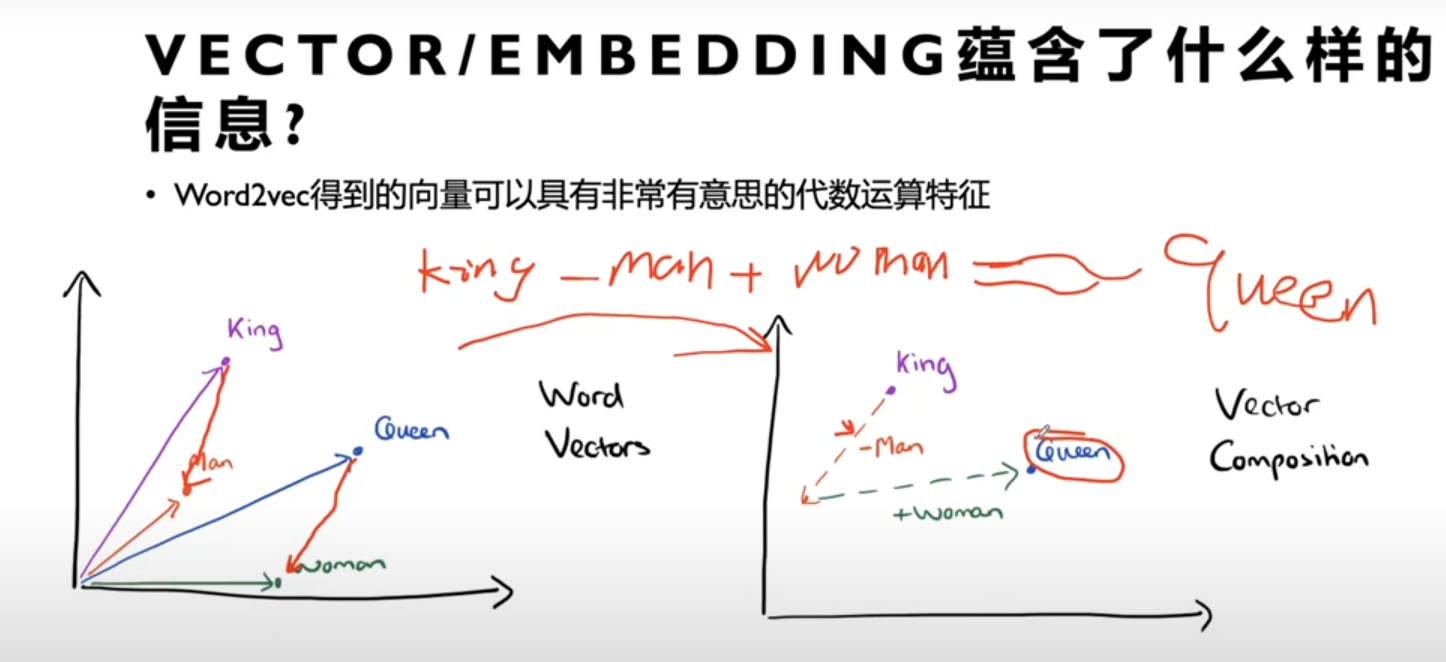 VECTOR/EMBEDDING蕴含了什么样的
信息?
• Word2vec得到的向量可以具有非常有意思的代数运算特征
king - man + woman = queen
King
Queen
Man
Woman
Word
Vectors
King
-Man
Queen
+Woman
Vector
Composition